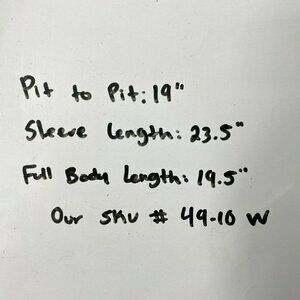 Pit to Pit: 19"
Sleeve Length: 23.5"
Full Body Length: 19.5"
Our SKU # 49-10 W